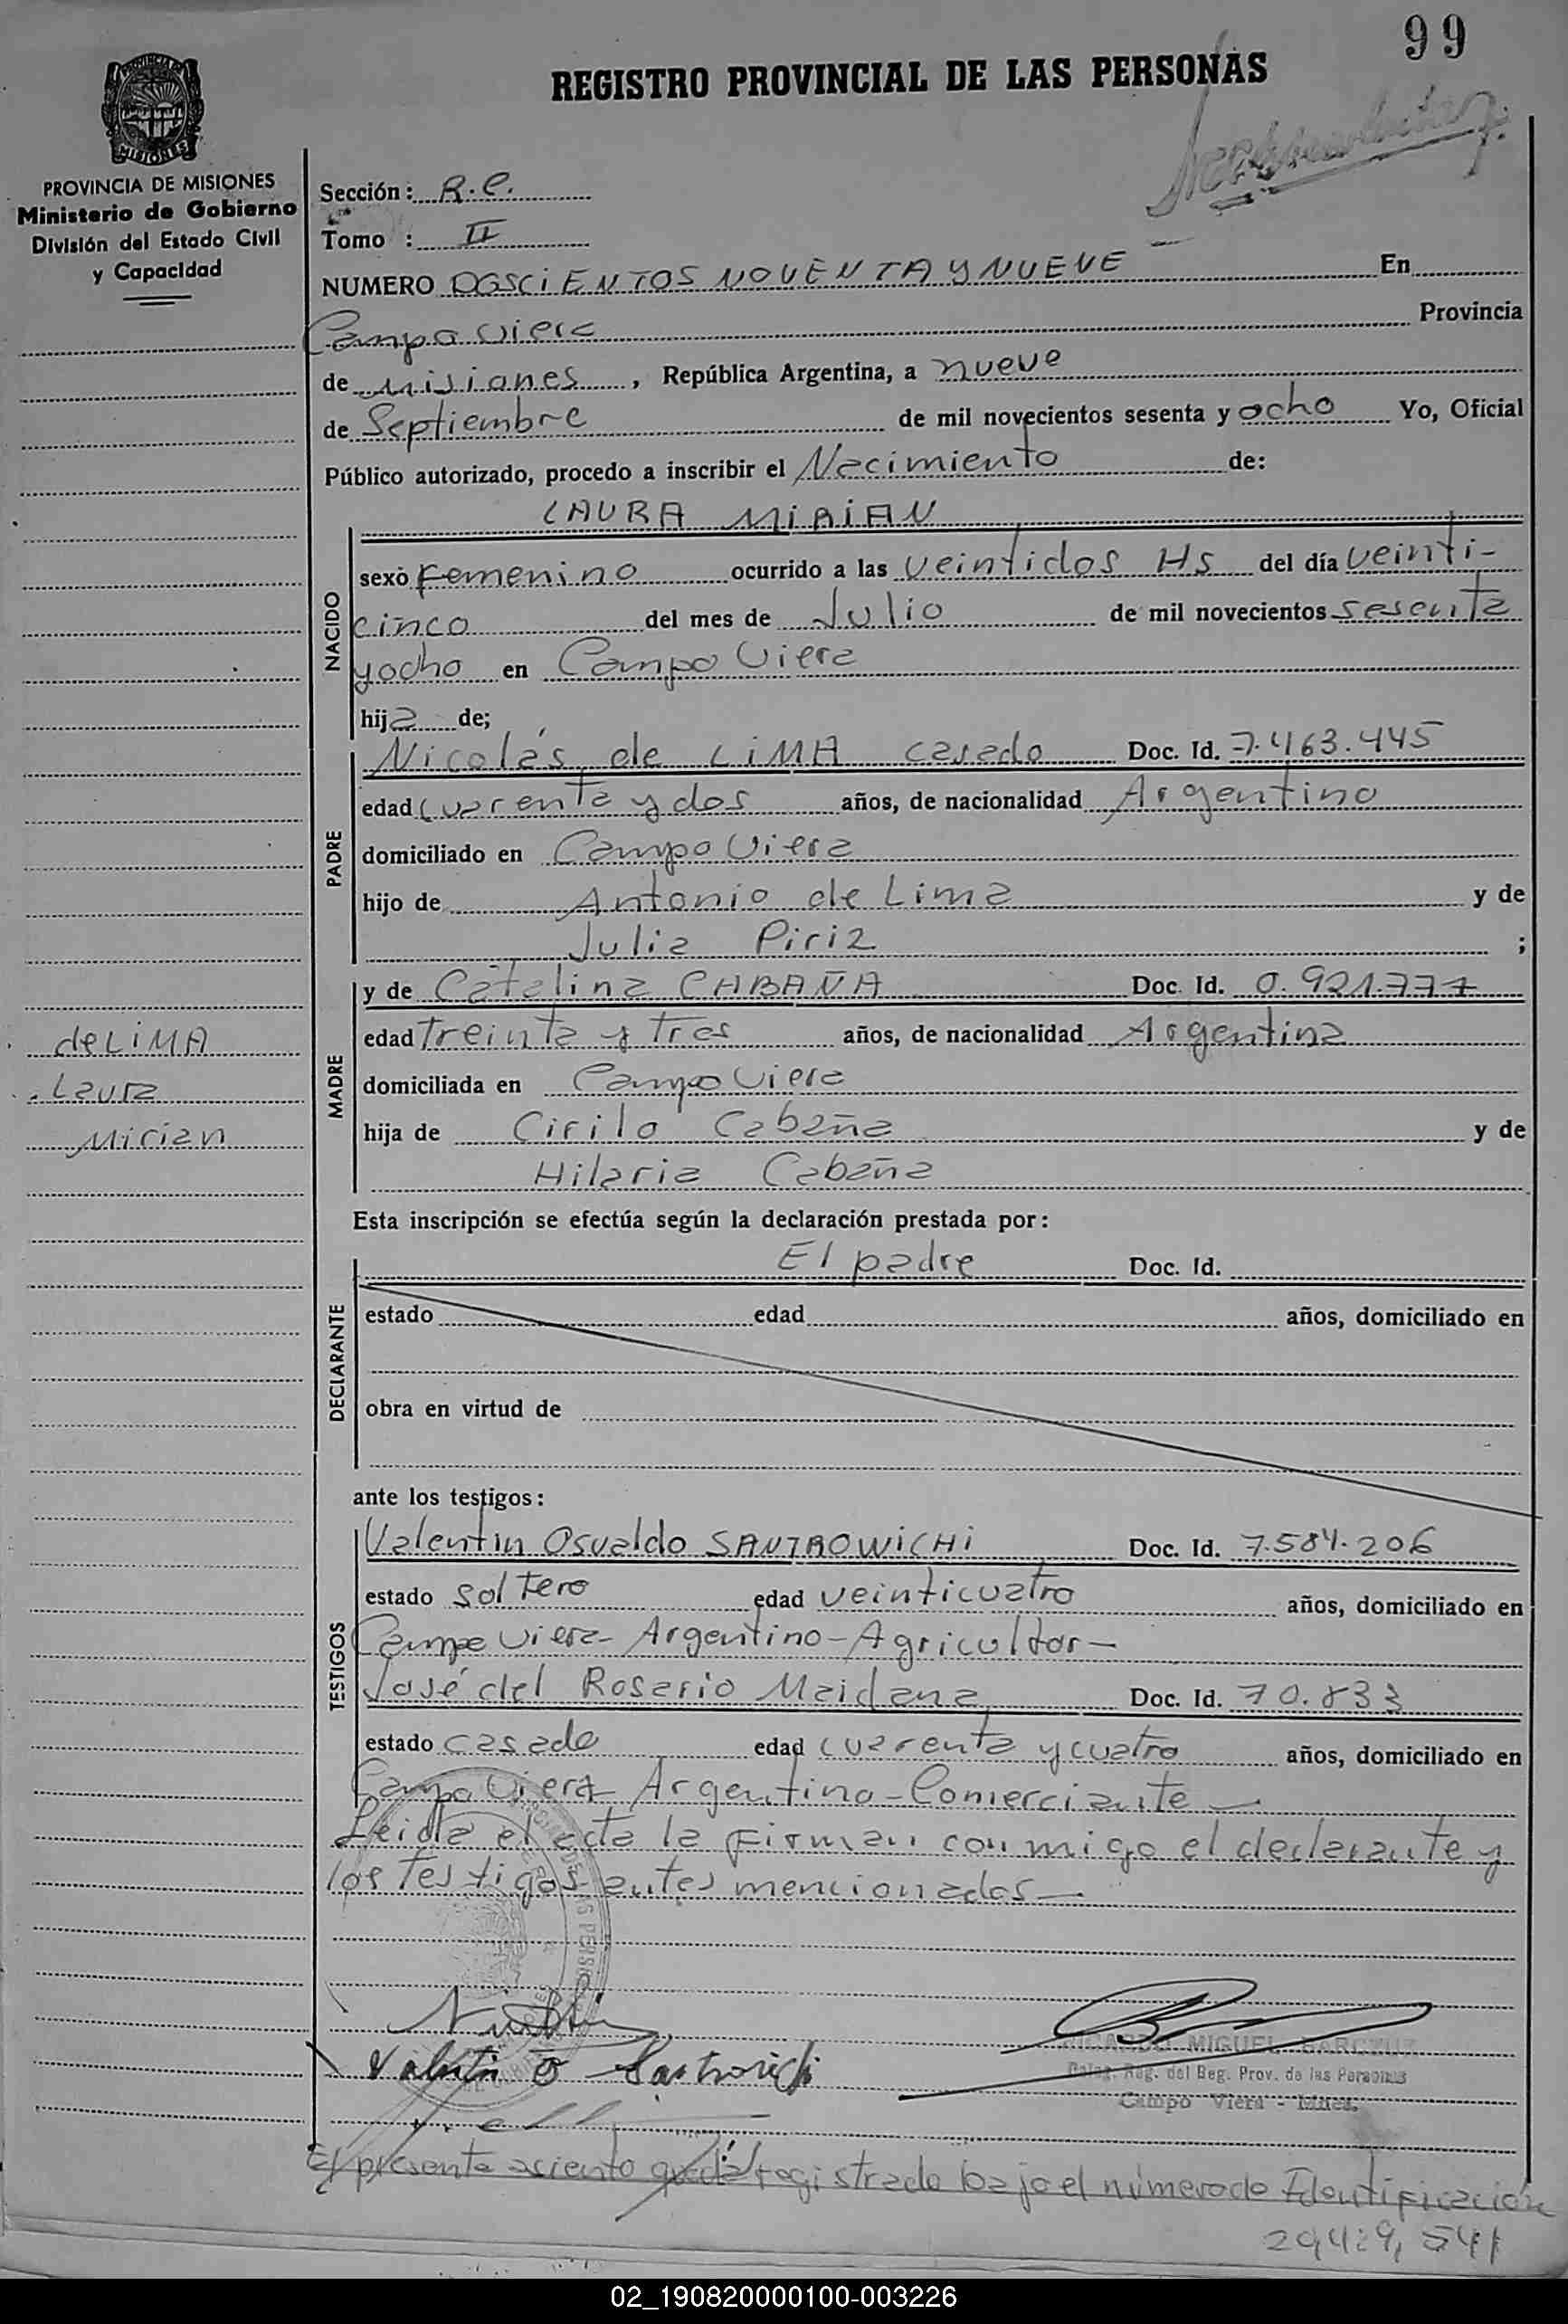 99
REGISTRO PROVINCIAL DE LAS PERSONAS
MISIONES
PROVINCIA DE MISIONES
Ministerio de Gobierno
División del Estado Civil
y Capacidad
Sección: R.C.
Tomo : II
NUMERO DOSCIENTOS NOVENTA Y NUEVE En
Campo Viera Provincia
de Misiones, República Argentina, a nueve
de Septiembre de mil novecientos sesenta y ocho Yo, Oficial
Público autorizado, procedo a inscribir el Nacimiento de:
LAURA MIRIAN
NACIDO
sexo Femenino ocurrido a las veintidos Hs del día veinti-
cinco del mes de Julio de mil novecientos sesenta
y ocho en Campo Viera
hija de;
PADRE
Nicolás de LIMA casado Doc. Id. 7.463.445
edad cuarenta y dos años, de nacionalidad Argentino
domiciliado en Campo Viera
hijo de Antonio de Lima y de
Julia Piriz ;
MADRE
y de Catalina CABAÑA Doc. Id. 0.921.777
edad treinta y tres años, de nacionalidad Argentina
domiciliada en Campo Viera
hija de Cirilo Cabaña y de
Hilaria Cabaña
de LIMA
Laura
Mirian
Esta inscripción se efectúa según la declaración prestada por:
DECLARANTE
El padre Doc. Id.
estado edad años, domiciliado en
obra en virtud de
ante los testigos:
TESTIGOS
Valentin Osvaldo SANTROWICHI Doc. Id. 7.584.206
estado soltero edad veinticuatro años, domiciliado en
Campo Viera - Argentino - Agricultor -
José del Rosario Maidana Doc. Id. 70.833
estado casado edad cuarenta y cuatro años, domiciliado en
Campo Viera Argentino - Comerciante -
Leida el acta la firman conmigo el declarante y
los testigos antes mencionados -
RICARDO MIGUEL
Deleg. Reg. del Reg. Prov. de las Personas
Campo Viera - Mnes.
El presente asiento queda registrado bajo el número de Identificación
02_190820000100-003226